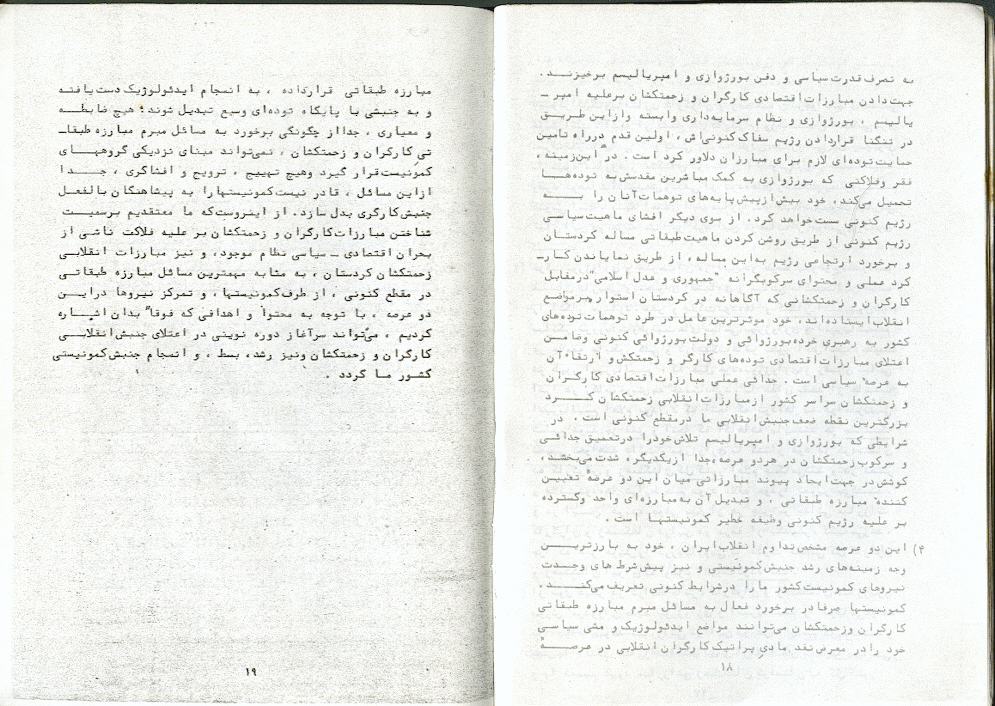 به تصرف قدرت سیاسی و دفن بورژوازی و امپریالیسم برخیزند.
جهت دادن مبارزات اقتصادی کارگران و زحمتکشان برعلیه امپر ـ
یالیسم ، بورژوازی و نظام سرمایه‌داری وابسته وازاین طریق
در تنگنا قراردادن رژیم سفاک کنونی‌اش ، اولین قدم درراه تامین
حمایت توده‌ای لازم برای مبارزان دلاور کرد است . در این‌زمینه ،
فقر وفلاکتی که بورژوازی به کمک مباشرین مقدسش به توده‌ها
تحمیل می‌کند، خود بیش‌ازپیش‌پایه‌های توهمات آنان را به
رژیم کنونی سست‌خواهد کرد. از سوی دیگر افشای ماهیت‌سیاسی
رژیم کنونی از طریق روشن کردن ماهیت‌طبقاتی مساله کردستان
و برخورد ارتجاعی رژیم به‌این مساله ، از طریق نمایاندن کارـ
کرد عملی و محتوای سرکوبگرانه "جمهوری و عدل اسلامی"درمقابل
کارگران و زحمتکشانی که آگاهانه در کردستان استوار برمواضع
انقلاب‌ایستاده‌اند، خود موثرترین عامل در طرد توهمات توده‌های
کشور به رهبری خرده‌بورژوائی و دولت بورژوائی کنونی وضامن
اعتلای مبارزات اقتصادی توده‌های کارگر و زحمتکش‌و ارتقاء آن
به عرصه سیاسی است . جدائی عملی مبارزات‌اقتصادی کارگران
و زحمتکشان سراسر کشور ازمبارزات‌انقلابی زحمتکشان کرد
بزرگترین نقطه ضعف‌جنبش‌انقلابی ما درمقطع کنونی است . در
شرایطی که بورژوازی و امپریالیسم تلاش‌خودرا درتعمیق جدائی
و سرکوب زحمتکشان در هردو عرصه،جدا ازیکدیگر، شدت می‌بخشد،
کوشش‌در جهت‌ایجاد پیوند مبارزاتی میان این دو عرصهٔ تعیین
کننده مبارزه طبقاتی ، و تبدیل آن به‌مبارزه‌ای واحد وگسترده
بر علیه رژیم کنونی وظیفه خطیر کمونیستها است .
۴) این دو عرصه مشخص‌تداوم انقلاب‌ایران ، خود به بارزترین
وجه زمینه‌های رشد جنبش‌کمونیستی و نیز پیش‌شرط های وحدت
نیروهای کمونیست‌کشور ما را درشرایط کنونی تعریف می‌کند .
کمونیستها صرفادر برخورد فعال به مسائل مبرم مبارزه طبقاتی
کارگران وزحمتکشان می‌توانند مواضع ایدئولوژیک و مشی سیاسی
خود رادر معرض‌نقد مادی پراتیک کارگران انقلابی در عرصهٔ
۱۸
مبارزه طبقاتی قرارداده ، به انسجام ایدئولوژیک دست‌یافته
و به جنبشی با پایگاه توده‌ای وسیع تبدیل شوند؛ هیچ ضابطه
و معیاری ، جدااز چگونگی برخورد به مسائل مبرم مبارزه طبقاـ
تی کارگران و زحمتکشان ، نمی‌تواند مبنای نزدیکی گروههای
کمونیست‌قرار گیرد وهیچ تهییج ، ترویج و افشاگری ، جدا
ازاین مسائل ، قادر نیست‌کمونیستهارا به پیشاهنگان بالفعل
جنبش‌کارگری بدل سازد. از اینروست‌که ما معتقدیم برسمیت
شناختن مبارزات‌کارگران و زحمتکشان بر علیه فلاکت ناشی از
بحران اقتصادی ـ سیاسی نظام موجود، و نیز مبارزات انقلابی
زحمتکشان کردستان ، به مثابه مهمترین مسائل مبارزه طبقاتی
در مقطع کنونی ، از طرف‌کمونیستها، و تمرکز نیروها دراین
دو عرصه ، با توجه به محتوا و اهدافی که فوقا" بدان اشاره
کردیم ، می‌تواند سرآغاز دوره نوینی در اعتلای جنبش‌انقلابی
کارگران و زحمتکشان ونیز رشد، بسط ، و انسجام جنبش‌کمونیستی
کشور ما گردد .
۱۹